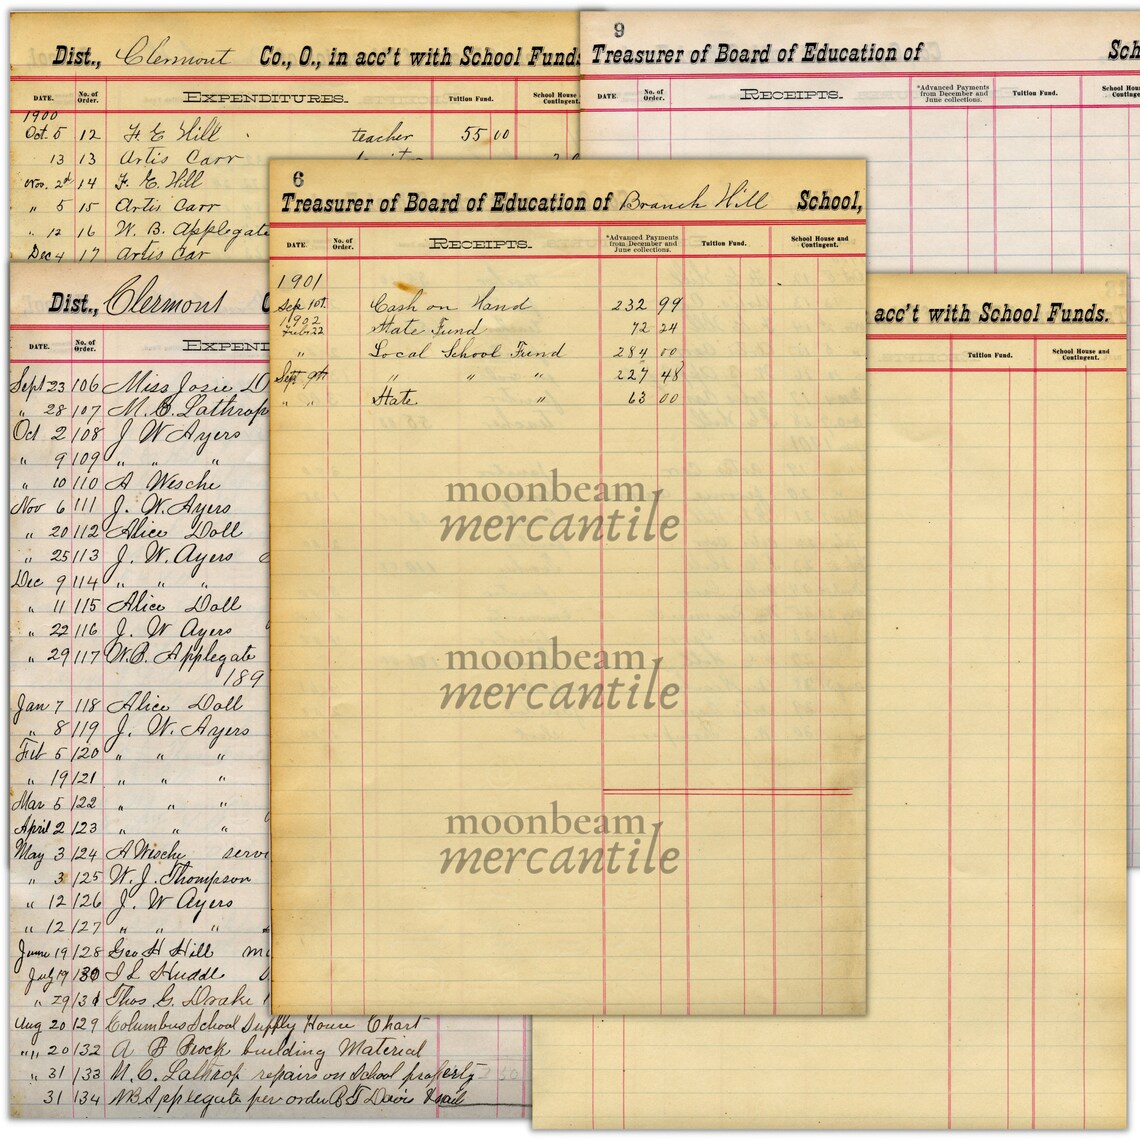 Dist., Clermont Co., O., in acc't with School Funds
DATE. No. of Order. EXPENDITURES. Tuition Fund. School House Contingent.
1900
Oct. 5 12 F. E. Hill teacher 55 00
13 13 Artis Carr
Nov. 2d 14 F. E. Hill
" 5 15 Artis Carr
" 12 16 W. B. Applegate
Dec 4 17 Artis Car
9
Treasurer of Board of Education of Sch
DATE. No. of Order. RECEIPTS. *Advanced Payments from December and June collections. Tuition Fund. School Hous Con
6
Treasurer of Board of Education of Branch Hill School,
DATE. No. of Order. RECEIPTS. *Advanced Payments from December and June collections. Tuition Fund. School House and Contingent.
1901
Sep 1st. Cash on Hand 232 99
1902
Feb. 22 State Fund 72 24
" Local School Fund 284 00
Sept 9th " " " 227 48
" " State " 63 00
Dist., Clermont C
DATE. No. of Order. EXPEND
Sept 23 106 Miss Josie D
" 28 107 M. C. Lathrop
Oct 2 108 J W Ayers
" 9 109 " " "
" 10 110 A Wesche
Nov 6 111 J. W. Ayers
" 20 112 Alice Doll
" 25 113 J. W. Ayers
Dec 9 114 " " "
" 11 115 Alice Doll
" 22 116 J. W Ayers
" 29 117 W. B. Applegate
189
Jan 7 118 Alice Doll
" 8 119 J. W. Ayers
Feb 5 120 " " "
" 19 121 " " "
Mar 5 122 " " "
April 2 123 " " "
May 3 124 A Wesche servi
" 3 125 W. J. Thompson
" 12 126 J. W Ayers
" 12 127 " " "
June 19 128 Geo H Hill
July 19 130 Huddle
" 29 131 Thos. G. Drake
Aug 20 129 Columbus School Supply House Chart
"" 20 132 A B Brock building Material
" 31 133 M. C. Lathrop repairs on School property
31 134 WB Applegate per order Davis
acc't with School Funds.
Tuition Fund. School House and Contingent.
moonbeam
mercantile
moonbeam
mercantile
moonbeam
mercantile